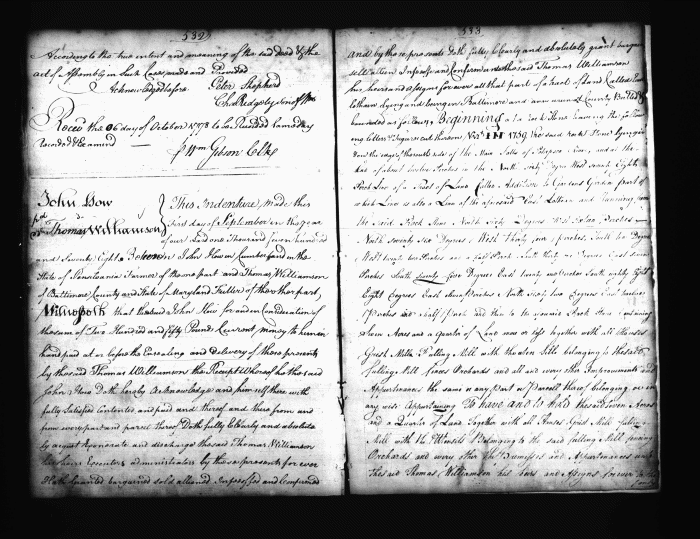 532
According to the true intent and meaning of the said deed & the
act of Assembly in Such Cases made and Provided
Acknowledged before Peter Shepherd
Chs Ridgely Son of Wm
Recd the 06 day of October 1778 to be Recorded Same day
recorded & Examined
Wm Gibson Clk
John How
Thomas Williamson
This Indenture Made this
first day of September in the year
of our Lord one Thousand Seven hundred
and Seventy Eight Between John How in Cumberland in the
State of Pensilvania Farmer of the one part and Thomas Williamson
of Baltimore County and State of Maryland Fuller of the other part,
Witnesseth that the said John How for and in Consideration of
the sum of Two Hundred and fifty Pounds Current money to him in
hand paid at or before the Ensealing and delivery of these presents
by the said Thomas Williamson the Receipt whereof he the said
John How Doth hereby acknowledge and himself therewith
fully Satisfied Contented and paid and thereof and there from and
from every part and parcel thereof Doth fully Clearly and absolutely
acquit Exonerate and discharge the said Thomas Williamson
his heirs Executors administrators by these presents for ever
Hath Granted bargained sold aliened Infeoffed and Confirmed
533
And by these presents Doth fully Clearly and absolutely grant bargain
sell alien Infeoffe and Confirm unto the said Thomas Williamson
his heirs and assigns for ever all that part of a tract of Land Called
lying and being in Baltimore County Butted &
bounded as follows Beginning at a rock Stone having the following
letters & figures cut thereon 1759
on the of the north side of the Main Falls of
of about twelve Perches in the North Sixty Degree West
Line of a Tract of Land Called Addition to Garden part of
which Line is also a Line of the aforesaid and running from
the said Rock Stone North Sixty Degrees West Perches
North Seventy Six Degrees West thirty four perches, South ten Degrees
West twenty two Perches and a half Perch South thirty Degrees East Seven
Perches South Seventy five Degrees East twenty South eighty Eight
Degrees East three Perches North Sixty two Degrees East twelve
Perches and a half Perch and then to the Rock Stone Containing
Seven Acres and a Quarter of Land more or less together with all Houses
Grist Mill Fulling Mill with the utensils belonging to the said
fulling Mill fences Orchards and all and every other Improvements and
Appurtenances the same or any part or Parcell thereof belonging or in
any wise Appertaining To have and to hold the said Seven Acres
and a Quarter of Land Together with all Houses Grist Mill fulling
Mill with the Utensils Belonging to the said fulling Mill fencing
Orchards and every other the Premisses and Appurtenances unto
the said Thomas Williamson his heirs and Assigns forever